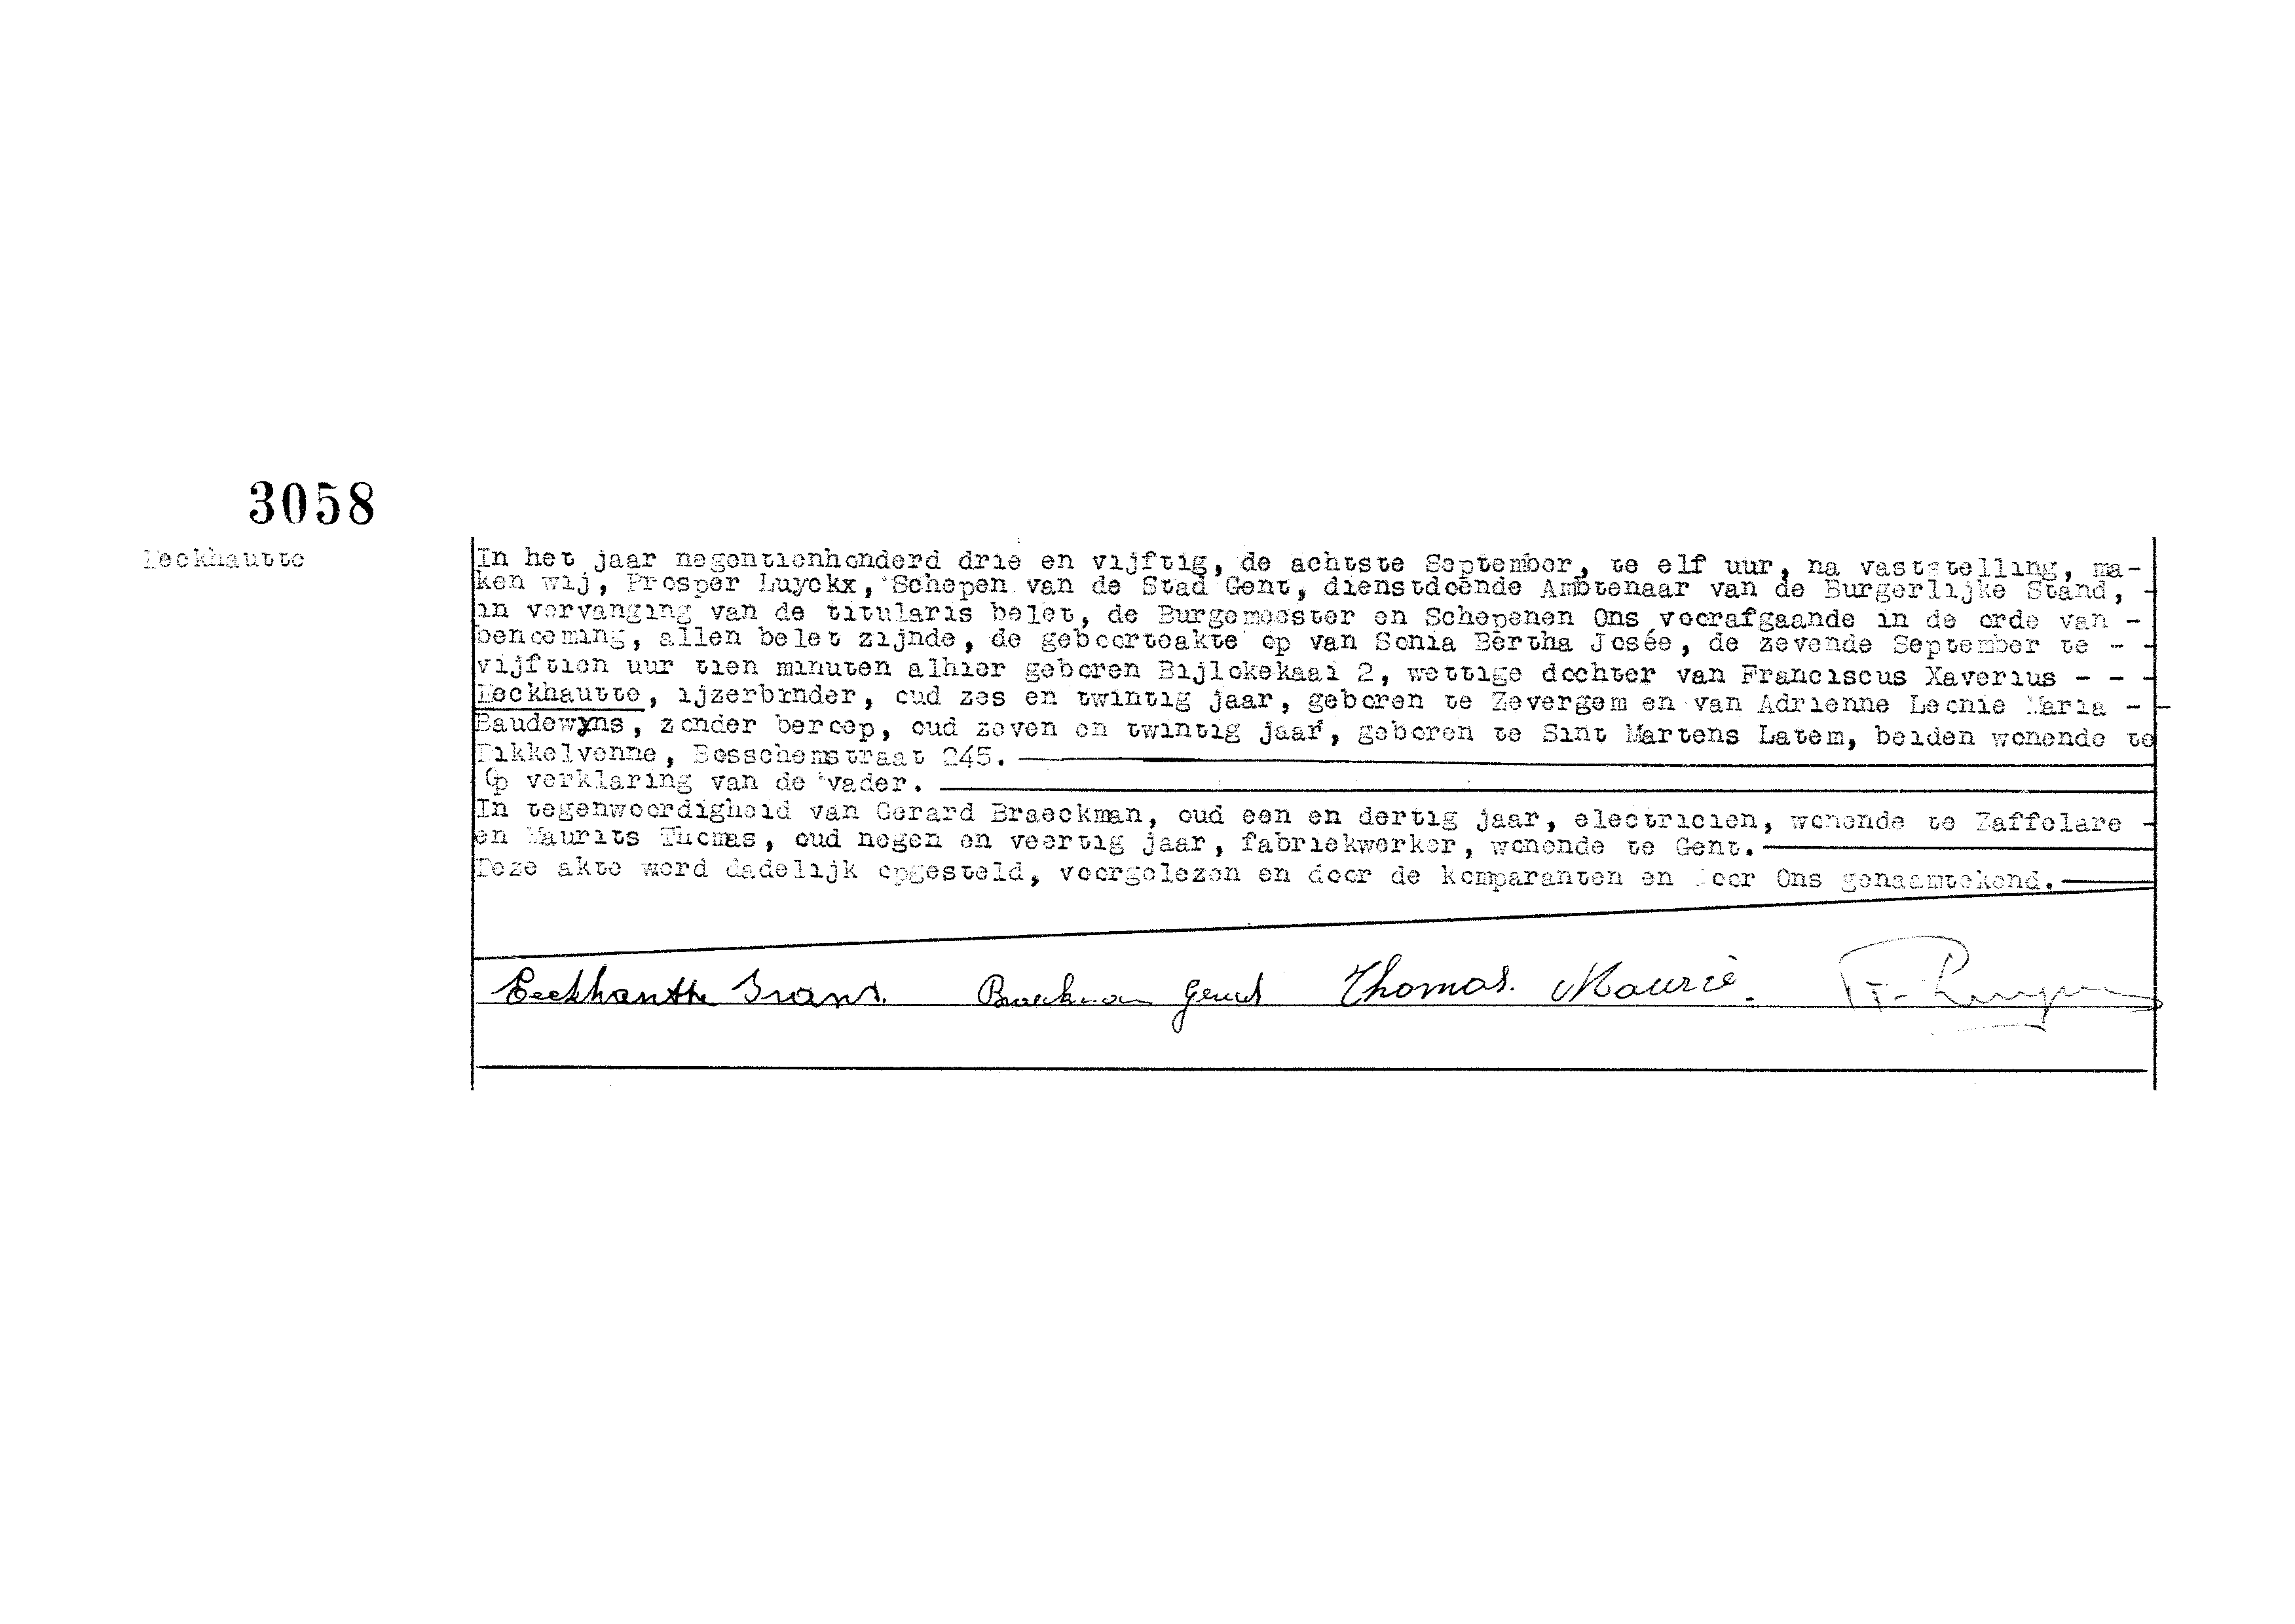 3058
Eeckhautte
In het jaar negentienhonderd drie en vijftig, de achtste September, te elf uur, na vaststelling, ma-
ken wij, Prosper Luyckx, Schepen van de Stad Gent, dienstdoënde Ambtenaar van de Burgerlijke Stand, -
in vervanging van de titularis belet, de Burgemeester en Schepenen Ons voorafgaande in de orde van -
benoeming, allen belet zijnde, de geboorteakte op van Sonia Bertha Josée, de zevende September te - -
vijftien uur tien minuten alhier geboren Bijlokekaai 2, wettige dochter van Franciscus Xaverius - - -
Eeckhautte, ijzerbinder, oud zes en twintig jaar, geboren te Zevergem en van Adrienne Leonie Maria - -
Baudewyns, zonder beroep, oud zeven en twintig jaar, geboren te Sint Martens Latem, beiden wonende te
Dikkelvenne, Bosschemstraat 245.
Op verklaring van de vader.
In tegenwoordigheid van Gerard Braeckman, oud een en dertig jaar, electricien, wonende te Zaffelare -
en Maurits Thomas, oud negen en veertig jaar, fabriekwerker, wonende te Gent.
Deze akte werd dadelijk opgesteld, voorgelezen en door de komparanten en door Ons genaamtekend.
Eeckhautte Frans. Braeckman Gerard Thomas. Maurice.